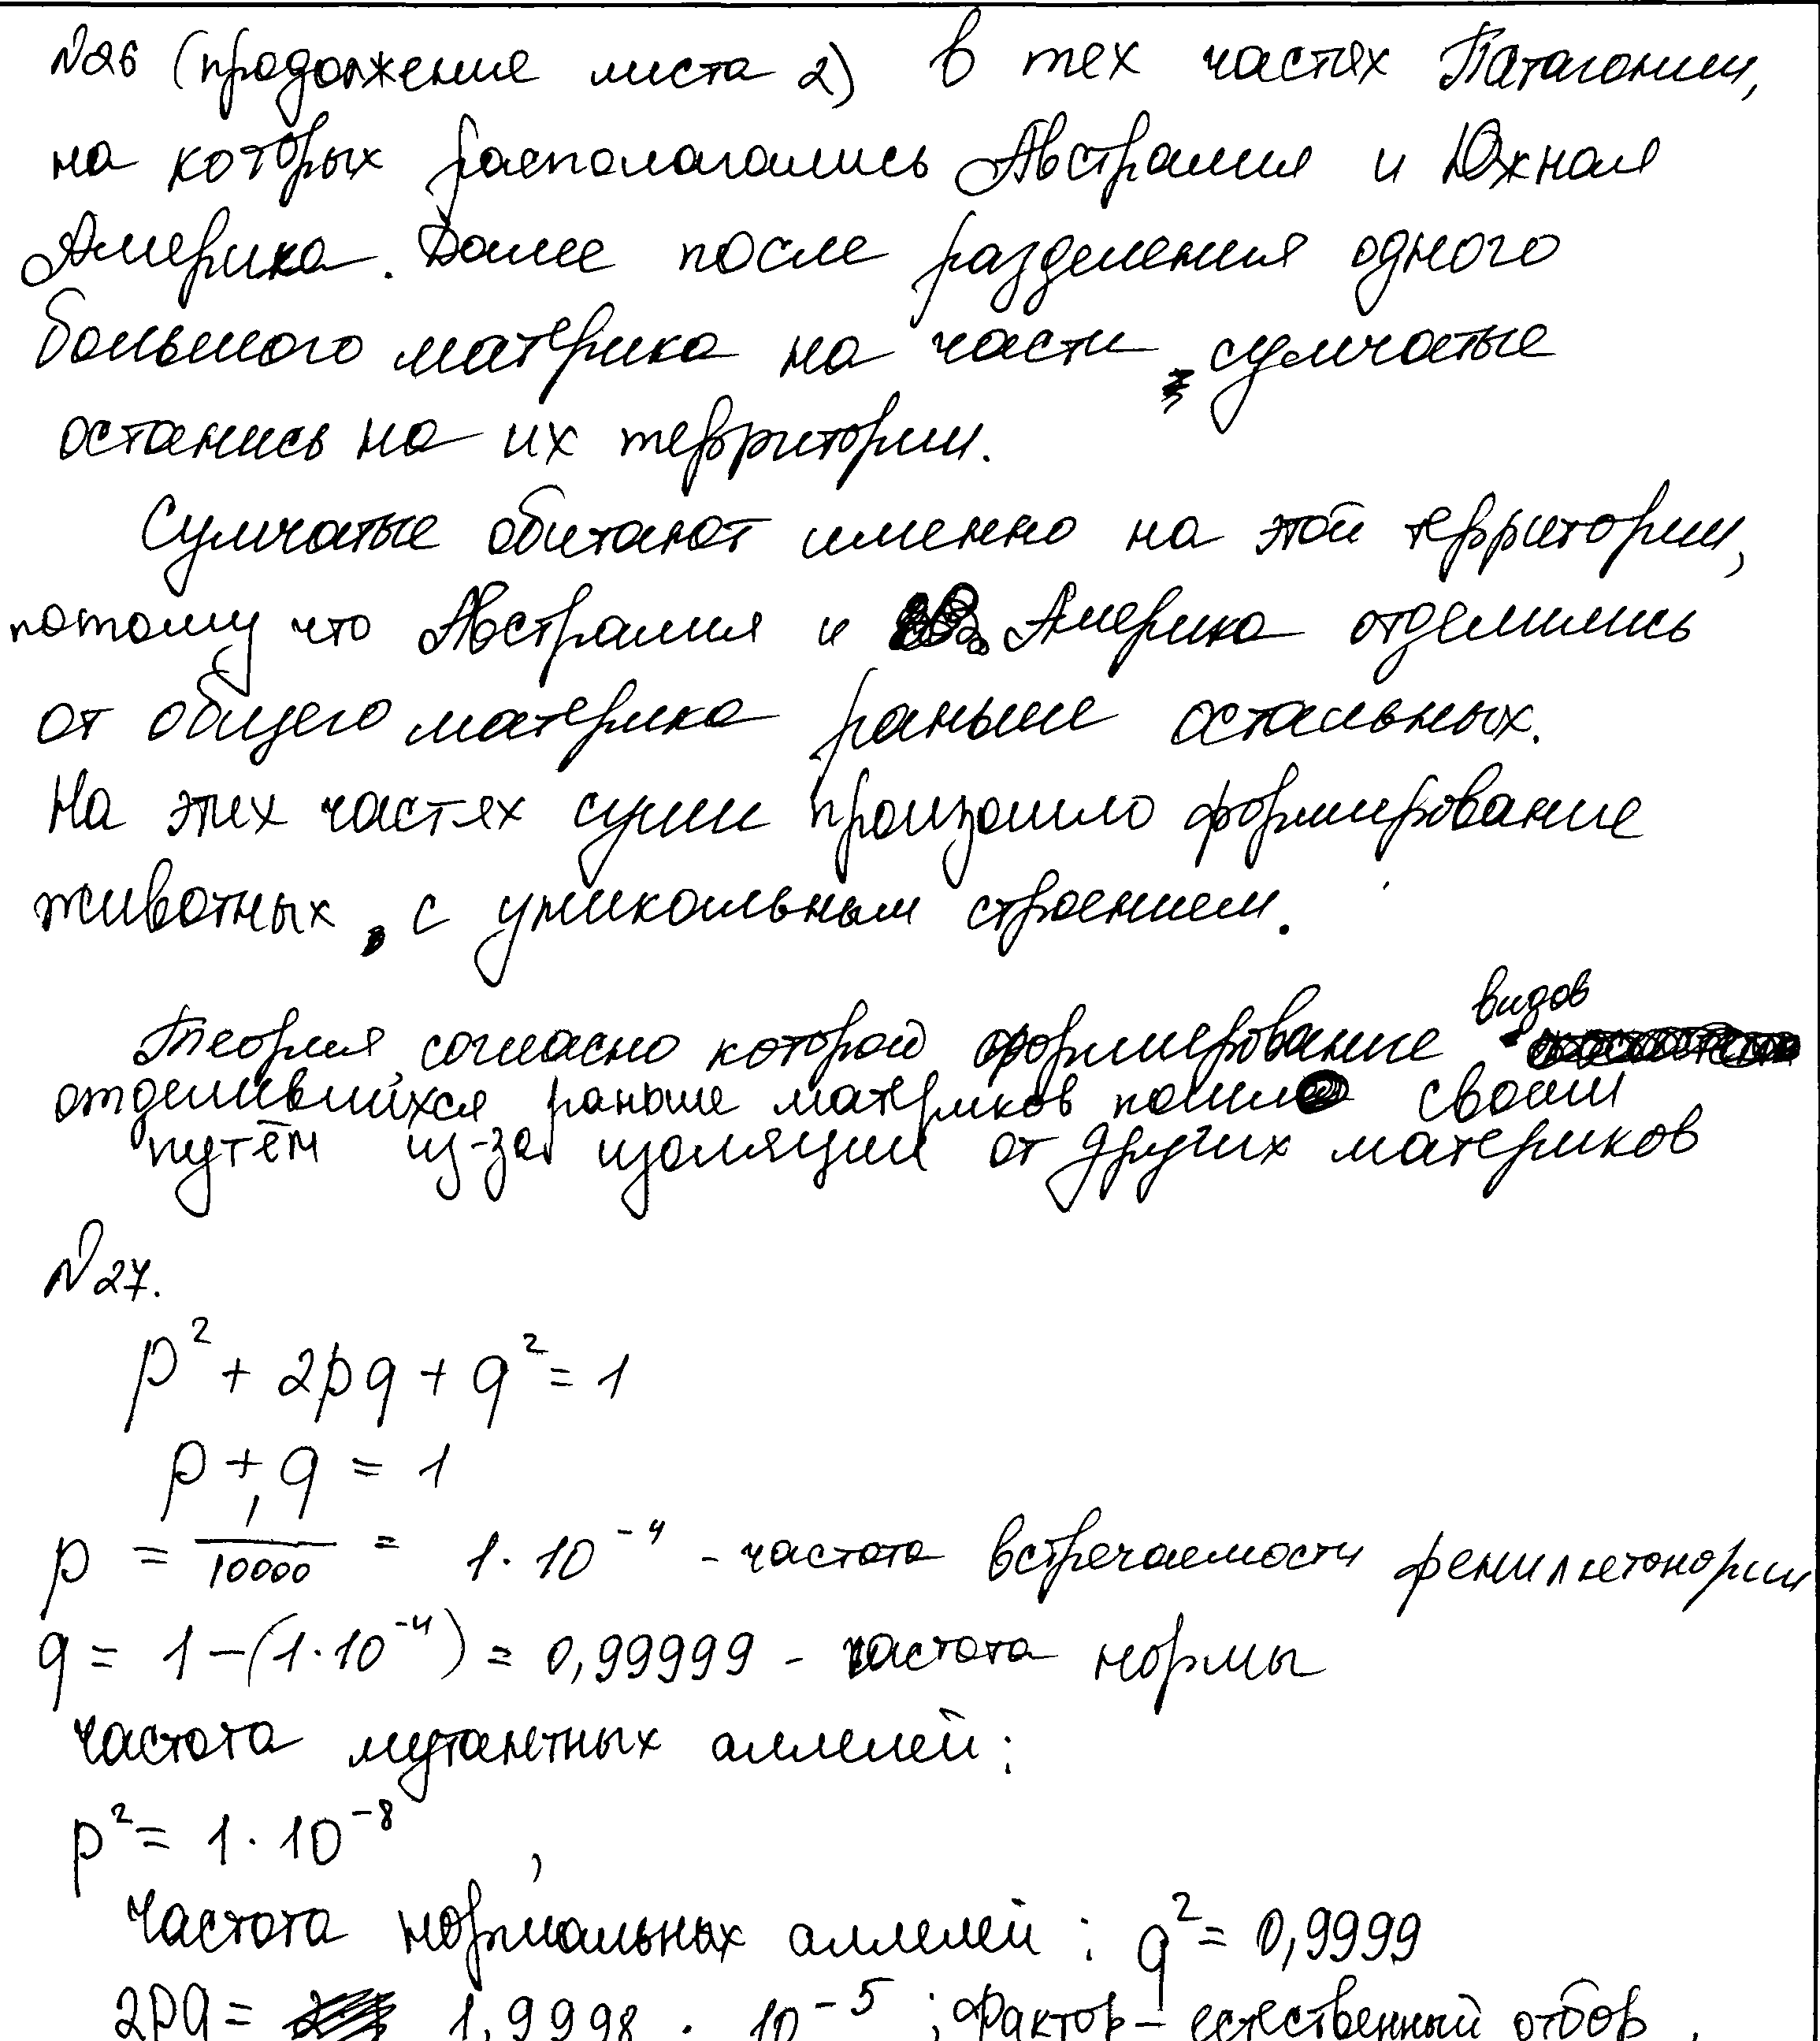 №26 (продолжение листа 2) в тех частях Патагонии,
на которых располагались Австралия и Южная
Америка. Далее после разделения одного
большого материка на части, сумчатые
остались на их территории.
Сумчатые обитают именно на этой территории,
потому что Австралия и Америка отделились
от общего материка раньше остальных.
На этих частях суши произошло формирование
животных, с уникальным строением.
Теория, согласно которой формирование видов
отделившихся раньше материков пошло своим
путём из-за изоляции от других материков
№27.
p² + 2pq + q² = 1
p + q = 1
p = 1/10000 = 1·10⁻⁴ - частота встречаемости фенилкетонории
q = 1-(1·10⁻⁴) = 0,99999 - частота нормы
частота мутантных аллелей:
p² = 1·10⁻⁸,
частота нормальных аллелей: q² = 0,9999
2pq = 1,9998 · 10⁻⁵; Фактор - естественный отбор.